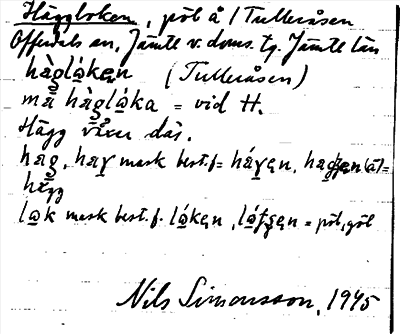 Häggloken, pöl å i Tulleråsen
Offerdals sn, Jämte v. doms. tg. Jämtl. län
hàglåkən (Tulleråsen)
mä hàglåka = vid H.
Hägg växer där.
hag, mask best. f =
hägg
låk mask best. f. låkən, = pöl, göl
Nils Simonsson, 1945